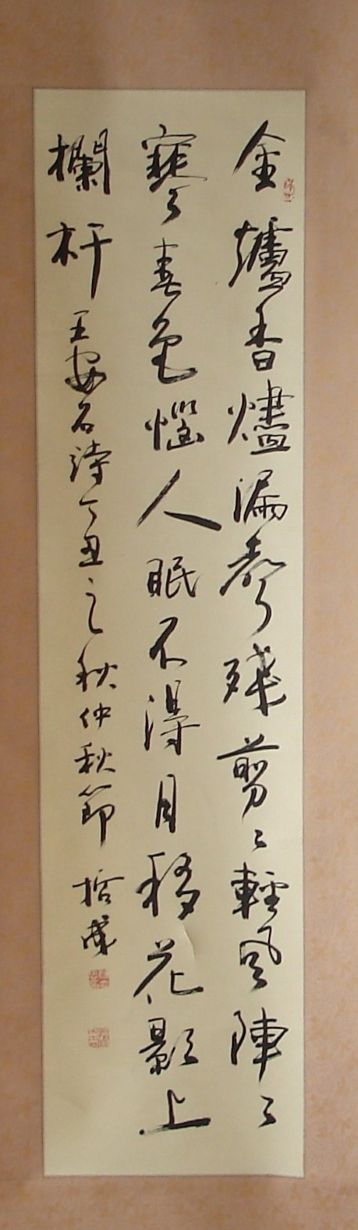 金爐香燼漏聲殘剪〻輕風陣〻
寒春色惱人眠不得月移花影上
欄杆 王安石詩丁丑之秋仲秋節